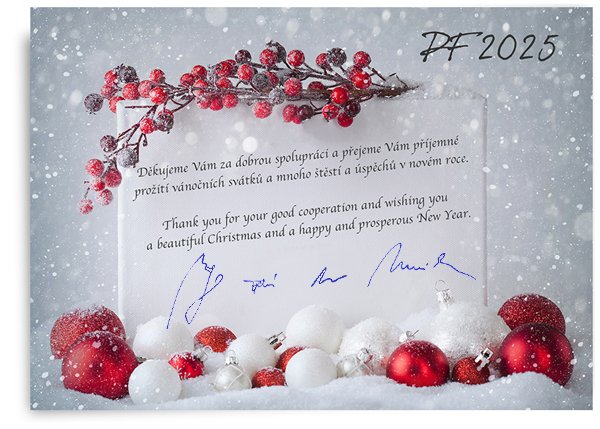 PF 2025
Děkujeme Vám za dobrou spolupráci a přejeme Vám příjemné
prožití vánočních svátků a mnoho štěstí a úspěchů v novém roce.
Thank you for your good cooperation and wishing you
a beautiful Christmas and a happy and prosperous New Year.